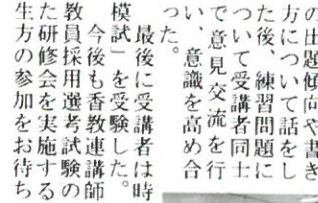 の出題傾向や書き
方について話をし
た後、練習問題に
ついて受講者同士
で意見交流を行
い、意識を高め合
った。
最後に受講者は時
模試」を受験した。
今後も香教連講師
教員採用選考試験の
た研修会を実施する
生方の参加をお待ち